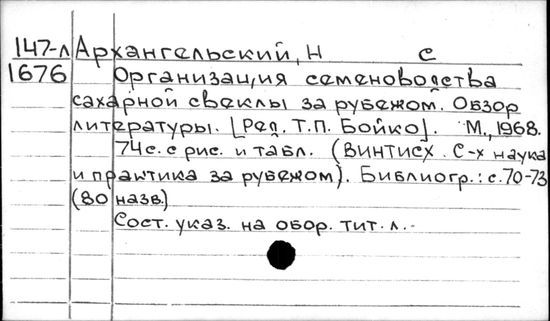 147-л Архангельский, Н с
1676 Организация семеноводства
сахарной свеклы за рубежом. Обзор
литературы. [Ред. Т.П. Бойко]. М., 1968.
74 с. с рис. и табл. (ВИНТИСХ. С-х наука
и практика за рубежом). Библиогр.: с. 70-73
(80 назв.)
Сост. указ. на обор. тит. л.